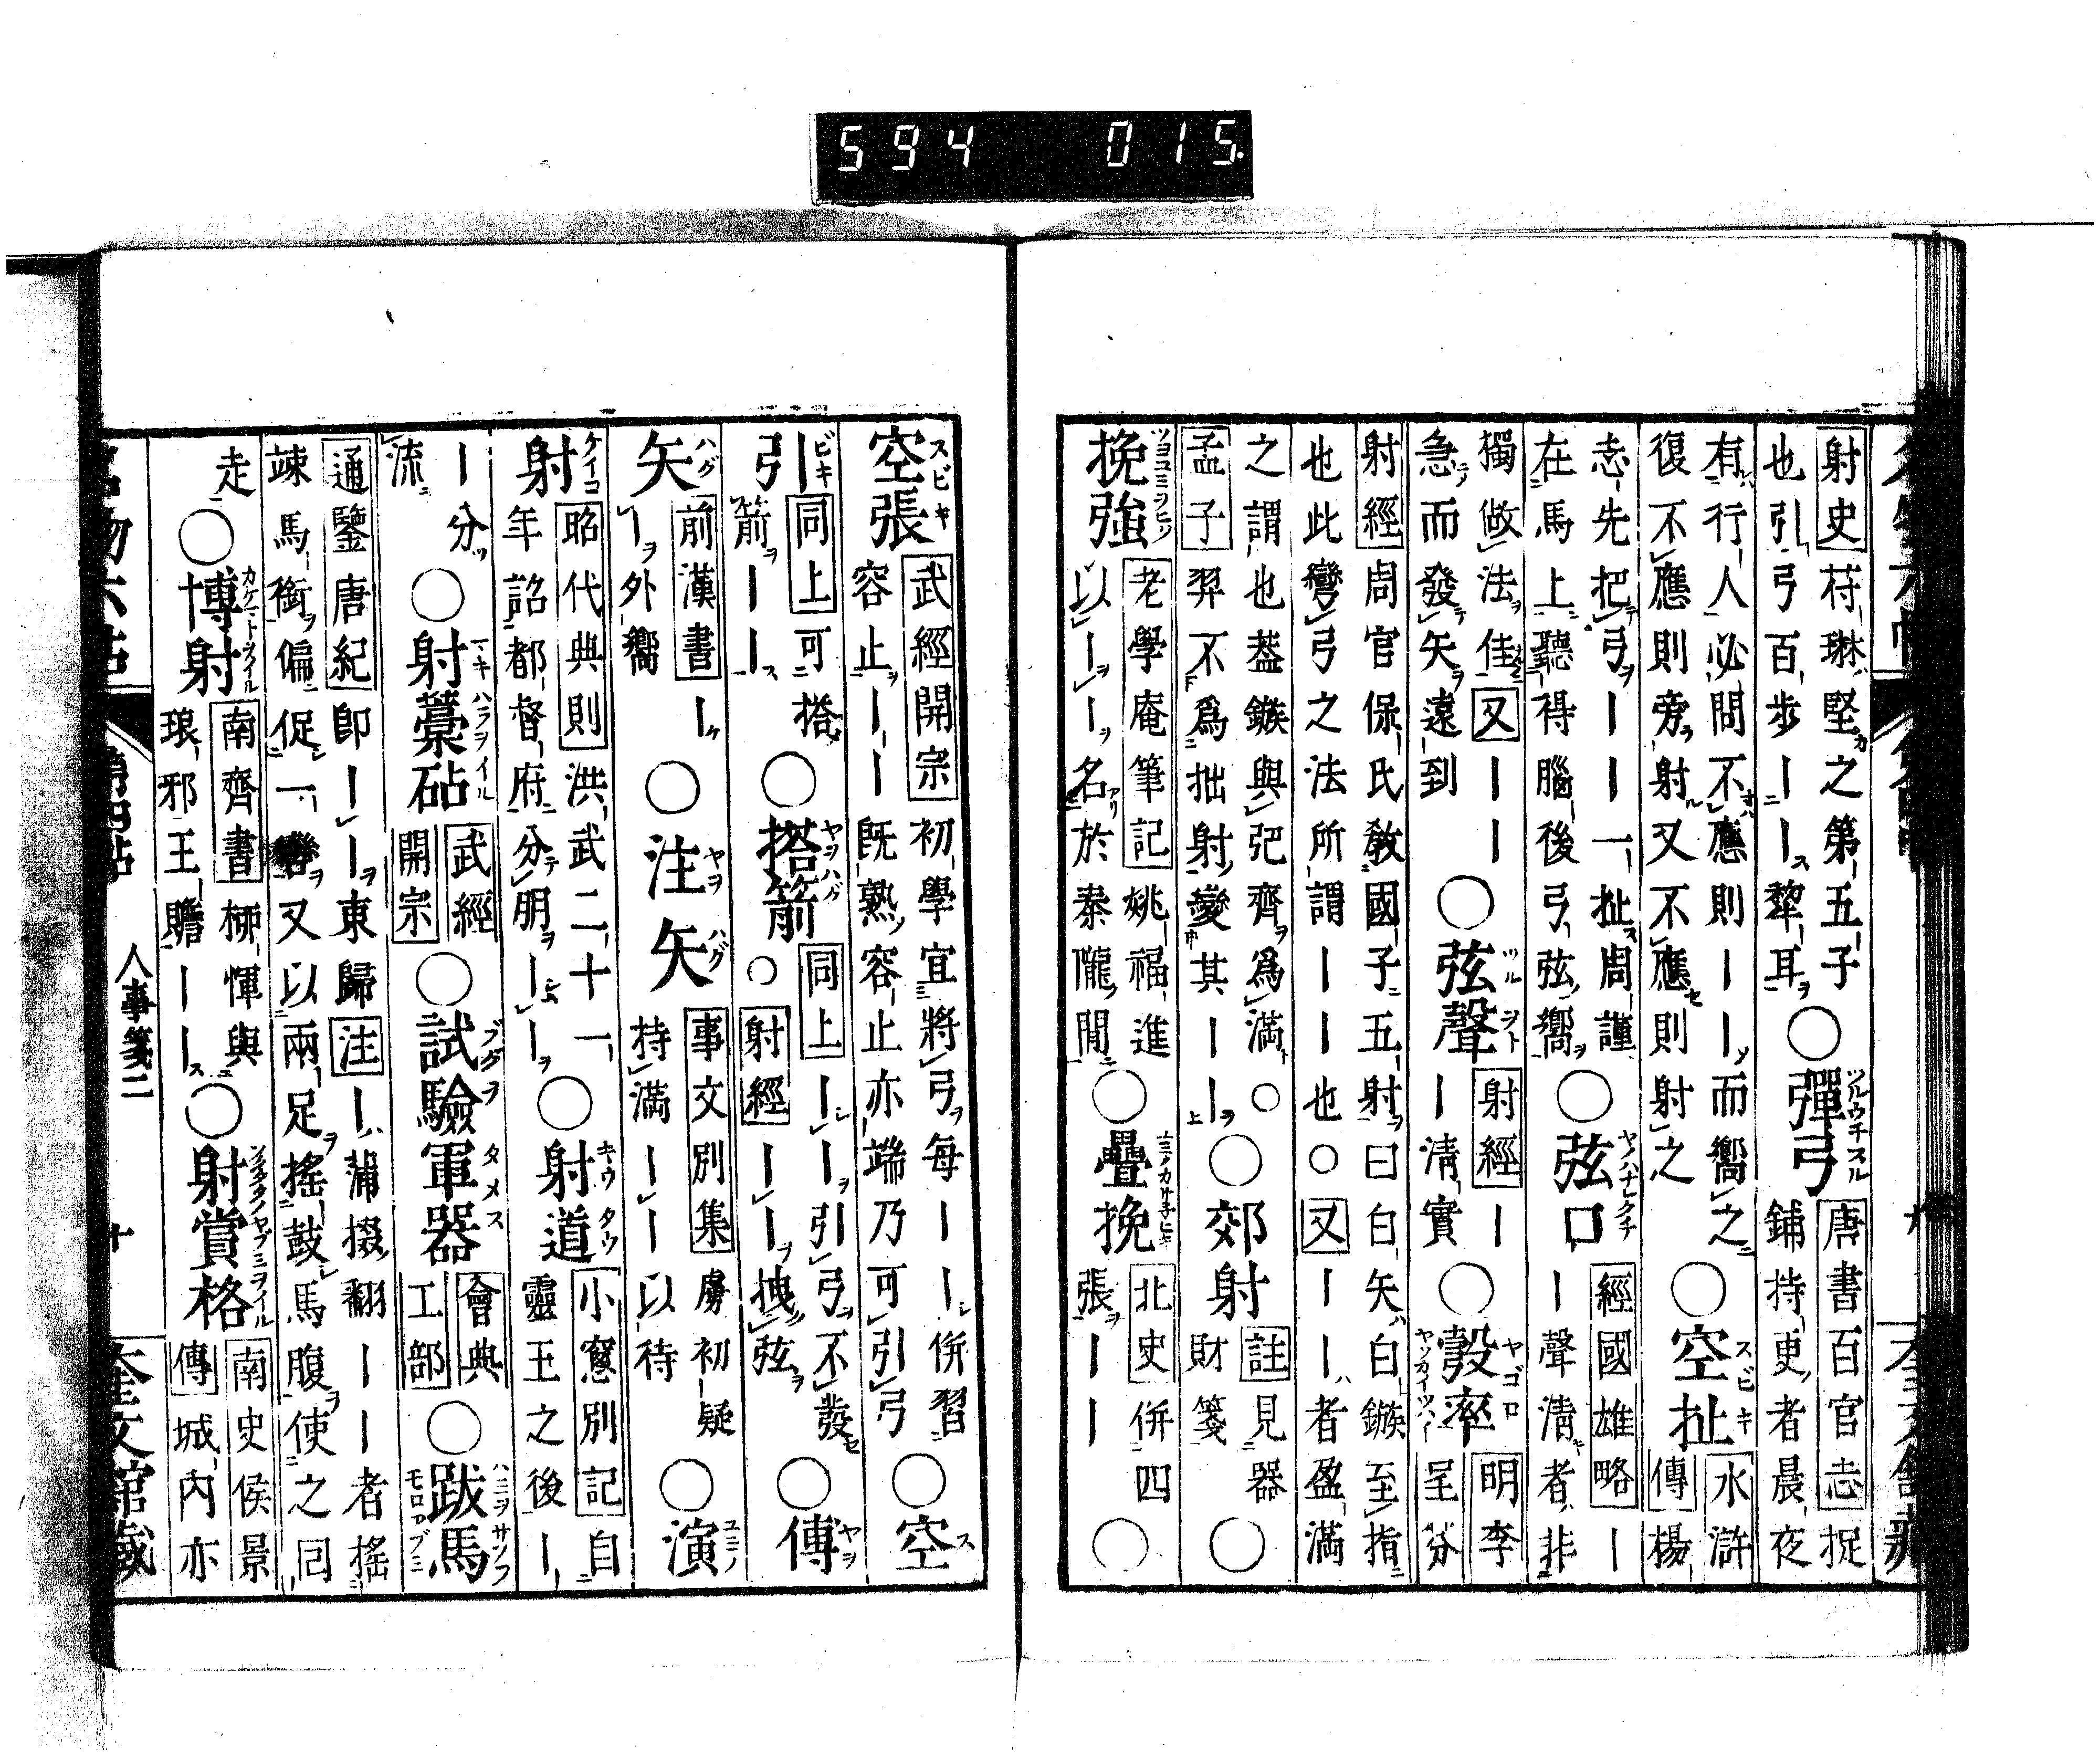 594 015.
射史苻琳堅之第五子
也引弓百歩ーー犂耳○彈弓唐書百官志捉
鋪持更者晨夜
有行人必問不應則ーー而嚮之
復不應則旁射又不應則射之○空扯水滸
傳楊
志先把弓ーー一扯周謹
在馬上聽得腦後弓弦嚮○弦口經國雄略ー
ー聲清者非
獨倣法佳又ーー
急而發矢遠到○弦聲射經ー
ー清實○彀率明李
呈芬
射經周官保氏教國子五射曰白矢白鏃至指
也此彎弓之法所謂ーー也○又ーー者盈滿
之謂也葢鏃與弝齊爲滿○
孟子羿不爲拙射變其ーー○郊射註見器
財箋○
挽強老學庵筆記姚福進
以ーー名於秦隴閒○疊挽北史併四
張ーー○
空張武經開宗初學宜將弓每ーー併習
容止ーー既熟容止亦端乃可引弓○空
引同上可搭
箭ーー○搭箭同上ーー引弓不發
○射經ーー拽弦○傳
矢前漢書ー
ー外嚮○注矢事文別集虜初疑
持滿ーー以待○演
射昭代典則洪武二十一
年詔都督府分朋ーー○射道小窻別記自
靈王之後ー
ー分
流○射藁砧武經
開宗○試驗軍器會典
工部○跋馬
通鑒唐紀卽ーー東歸注ー蒲撥翻ーー者搖
竦馬銜偏促一轡又以兩足搖鼓馬腹使之囘
走○博射南齊書柳惲與
琅邪王瞻ーー○射賞格南史侯景
傳城内亦
名物六帖
第四帖
人事箋二
十
奎文館藏